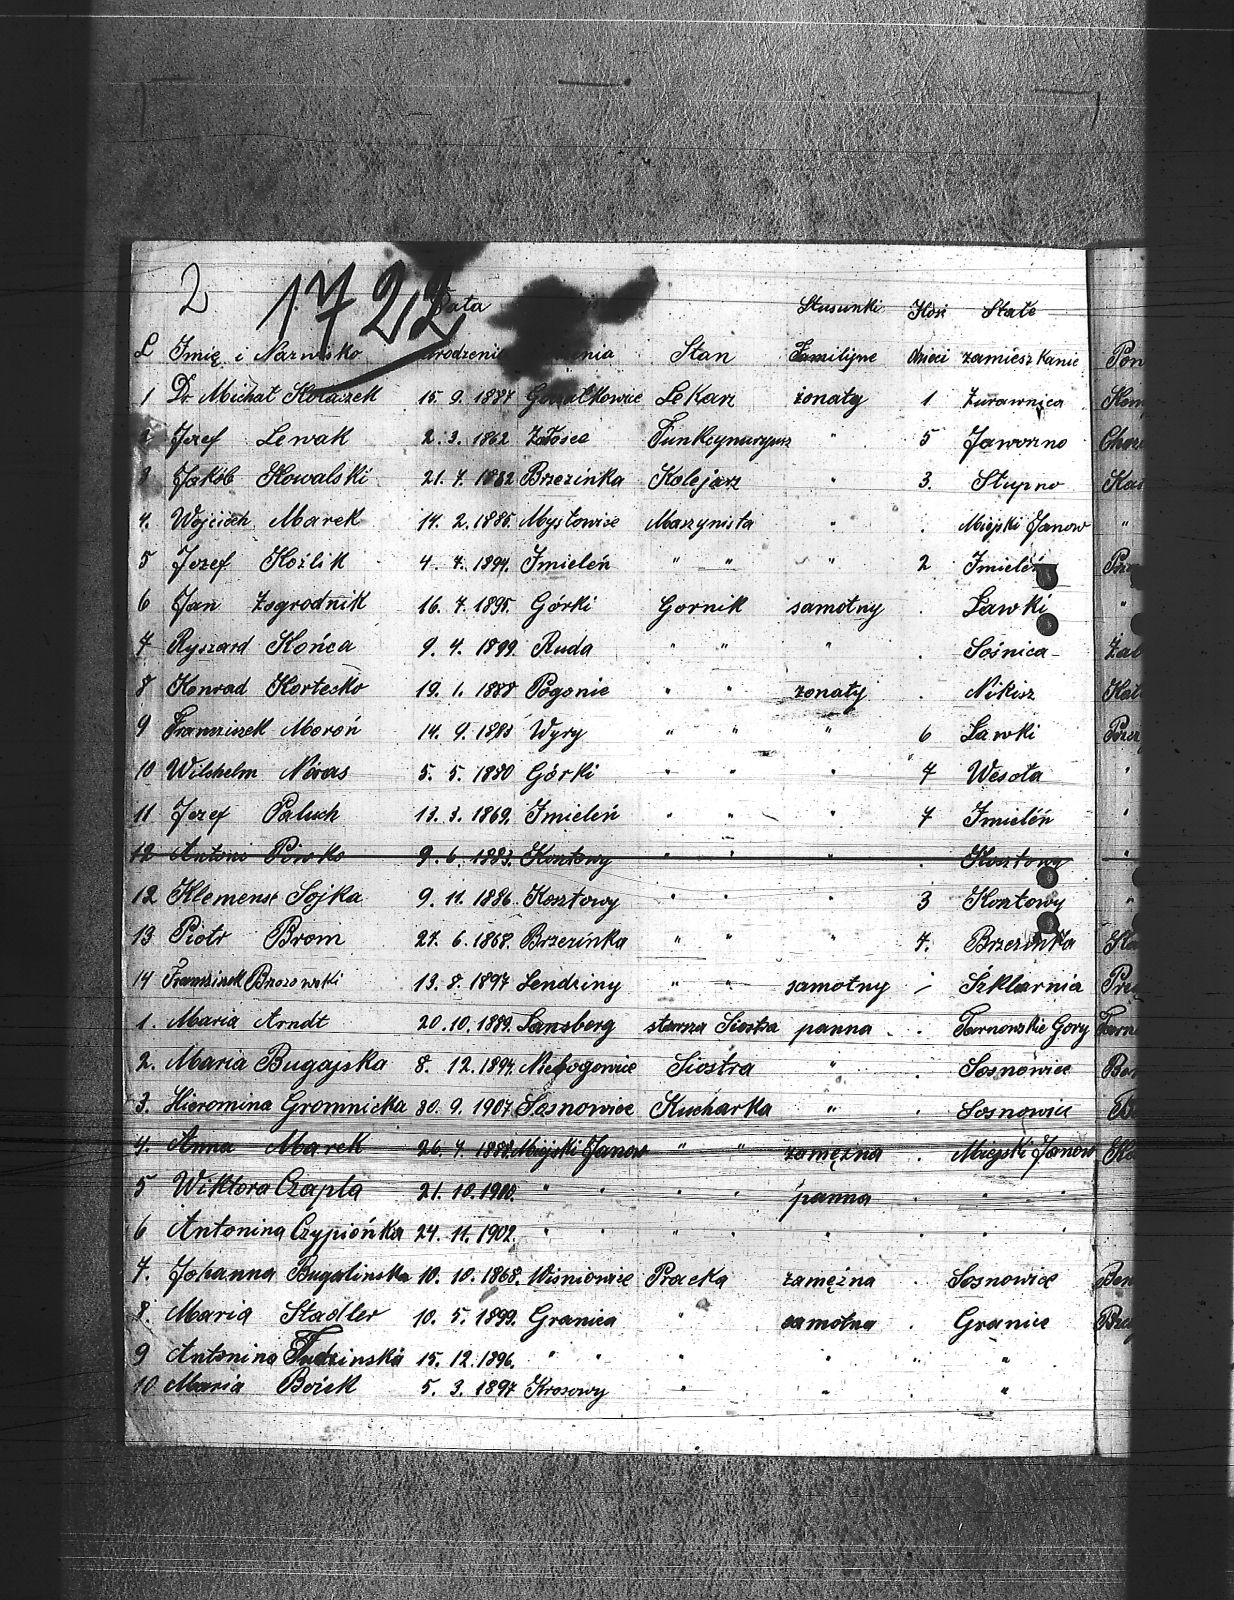 2 1722
Data Stusunki Ilość Stałe
L Imię i Nazwisko urodzenia Stan Familijne dzieci zamieszkanie
1 Dr Michał Kołaszek 15. 9. 1887 LeKarz żonaty 1 Żurawnica
2 Jozef Lewak 2. 3. 1862 Załosce Funkcynuryusz " 5 Jaworzno
3 Jakób Kowalski 21. 7. 1882 Brzezinka Kolejarz " 3. Słupno
4. Wojciech Marek 14. 2. 1885. Mysłowice Maszynista " . Miejski Janow "
5 Jozef Koźlik 4. 7. 1894. Imieleń " " " 2 Imieleń
6 Jan Zagrodnik 16. 7. 1895. Górki Gornik samotny . Ławki "
7 Ryszard Końca 9. 4. 1899. Ruda " " " . Sośnica
8 Konrad Kortecko 19. 1. 1888 Pogonie " " zonaty . Nikisz
9 Franciszek Moroń 14. 9. 1885 Wyry " " " 6 Ławki
10 Wilshelm Niwas 5. 5. 1880 Górki " " " 7 Wesoła "
11 Jozef Paluch 13. 3. 1869. Imieleń " " " 7 Imieleń "
12 Antoni 9. 6. 1883. Kosztowy " " " . Kosztowy "
12 Klemens Sojka 9. 11. 1886 Kosztowy " " " 3 Kosztowy "
13 Piotr Brom 27. 6. 1868. Brzezinka " " " 7. Brzezinka
14 Franciszek Brzozowski 13. 8. 1897 Lendziny " " samotny / Szklarnia
1. Maria Arndt 20. 10. 1889. Lansberg starsza Siostra panna . . Tarnowskie Gory
2. Maria Bugajska 8. 12. 1894. Niebogowice Siostra " . Sosnowice
3. Hieromina Gromnicka 30. 9. 1907 Sosnowice Kucharka " . Sosnowice
4. Anna Marek 26. 7. 1888. Miejski Janow " " zamężna . Miejski Janow
5 Wiktora Czapla 21. 10. 1900. " " " " panna . " "
6 Antonina Czypiońka 24. 11. 1902. " " " " " . " "
7. Johanna Bugalinska 10. 10. 1868. Wiśniowice Pracka zamężna . Sosnowice
8. Maria Stadler 10. 5. 1899. Granica " samotna . Granice
9 Antonina Tudzinská 15. 12. 1896. " " " " " "
10 Maria Bożek 5. 3. 1897 Krosowy " " . "